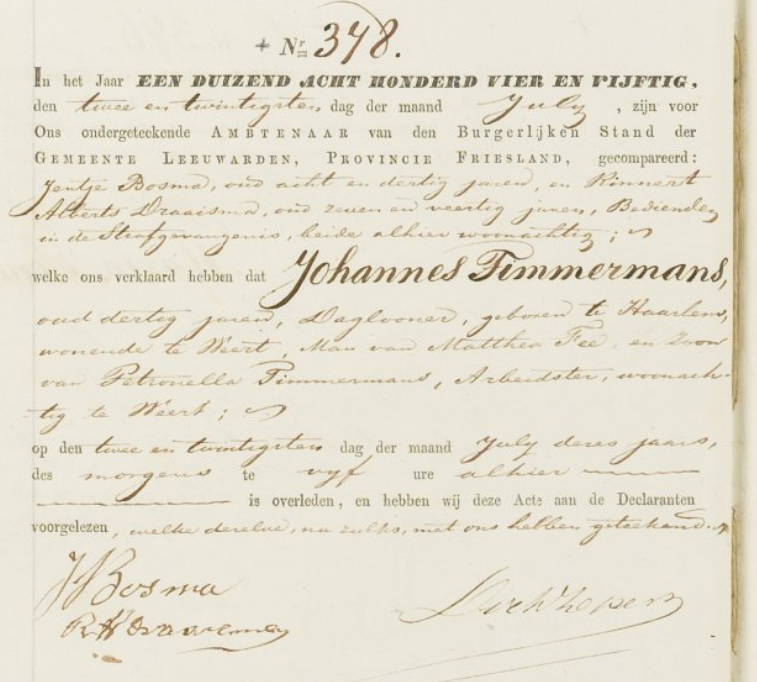 + Nr. 378.
In het Jaar EEN DUIZEND ACHT HONDERD VIER EN VIJFTIG,
den twee en twintigsten dag der maand July , zijn voor
Ons ondergeteekende AMBTENAAR van den Burgerlijken Stand der
GEMEENTE LEEUWARDEN, PROVINCIE FRIESLAND, gecompareerd:
Jentje Bosma, oud acht en dertig jaren, en Rinnert
Alberts Draaisma, oud zeven en veertig jaren, Bedienden
in de Strafgevangenis, beide alhier woonachtig;
welke ons verklaard hebben dat Johannes Timmermans,
oud dertig jaren, Daglooner, geboren te Haarlem,
wonende te Weert, Man van Matthea Fee, en Zoon
van Petronella Timmermans, Arbeidster, woonach-
tig te Weert;
op den twee en twintigsten dag der maand July dezes jaars,
des morgens te vyf ure alhier
is overleden, en hebben wij deze Acte aan de Declaranten
voorgelezen, welke dezelve, na zulks, met ons hebben geteekend.
J Bosma